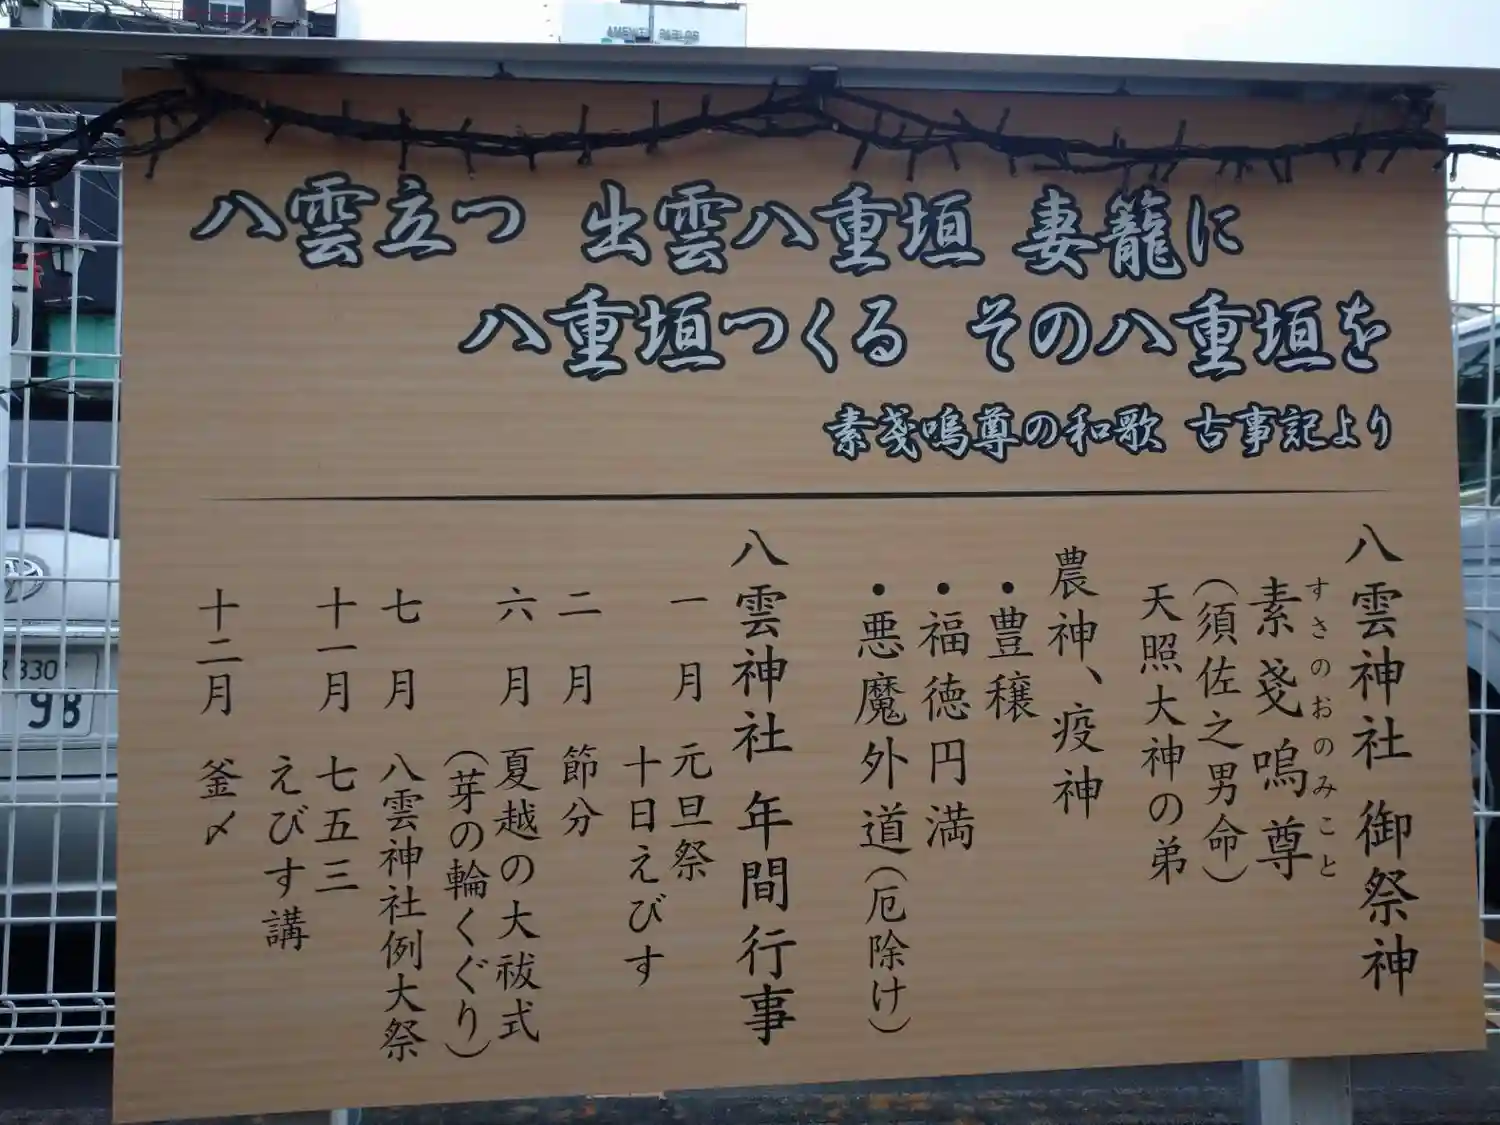 AMENITY PARLOR
八雲立つ 出雲八重垣 妻籠に
八重垣つくる その八重垣を
素戔嗚尊の和歌 古事記より
八雲神社 御祭神
すさのおのみこと
素戔嗚尊
(須佐之男命)
天照大神の弟
農神、疫神
・豊穣
・福徳円満
・悪魔外道(厄除け)
八雲神社 年間行事
一月 元旦祭
十日えびす
二月 節分
六月 夏越の大祓式
(芽の輪くぐり)
七月 八雲神社例大祭
十一月 七五三
えびす講
十二月 釜〆
330
98